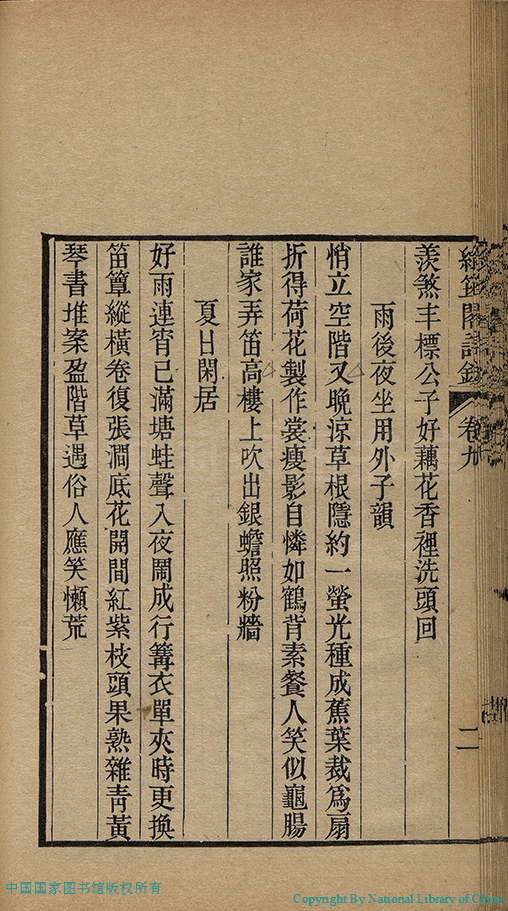 綠筠閣詩鈔 卷九 二
羨煞丰標公子好藕花香裡洗頭回
雨後夜坐用外子韻
悄立空階又晚涼草根隱約一螢光種成蕉葉裁爲扇
折得荷花製作裳瘦影自憐如鶴背素餐人笑似龜腸
誰家弄笛高樓上吹出銀蟾照粉牆
夏日閑居
好雨連宵已滿塘蛙聲入夜鬧成行篝衣單夾時更換
笛簟縱橫卷復張澗底花開間紅紫枝頭果熟雜靑黃
琴書堆案盈階草遇俗人應笑懶荒
中国国家图书馆版权所有
Copyright By National Library of China